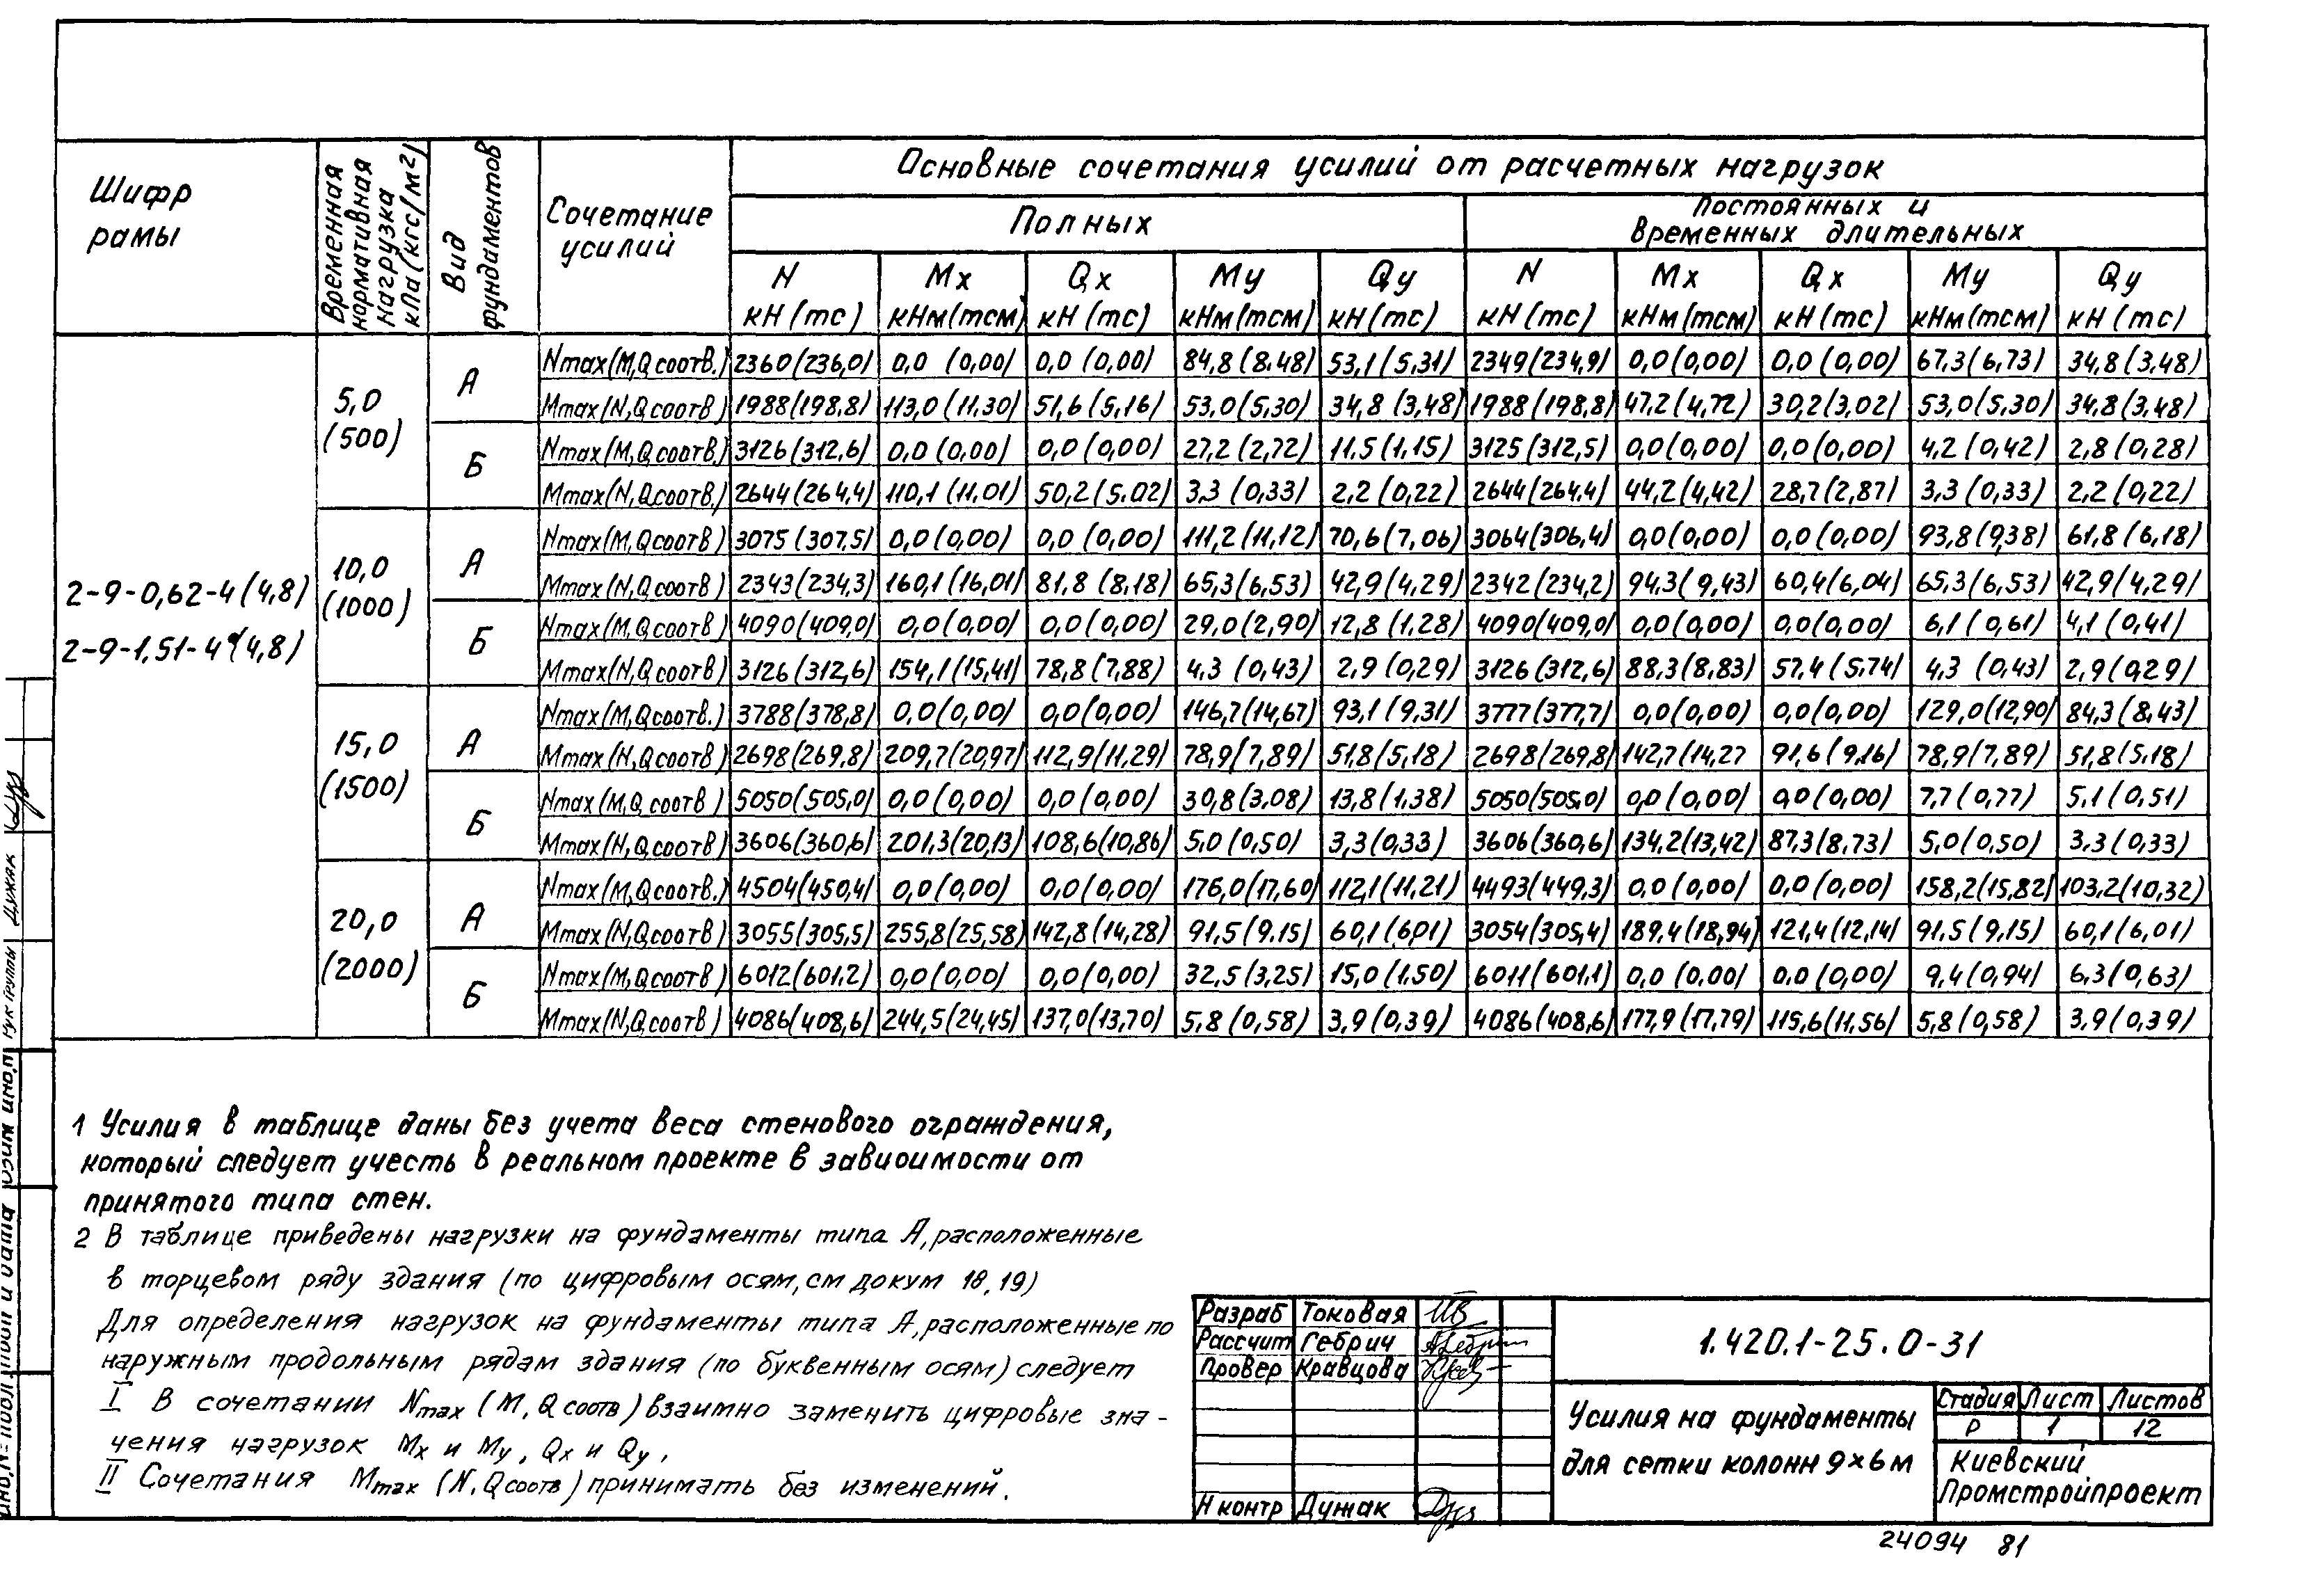 Шифр рамы
Временная нормативная нагрузка кПа (кгс/м²)
Вид фундаментов
Сочетание усилий
Основные сочетания усилий от расчетных нагрузок
Полных
Постоянных и временных длительных
N кН (тс) Mx кНм (тсм) Qx кН (тс) My кНм (тсм) Qy кН (тс) N кН (тс) Mx кНм (тсм) Qx кН (тс) My кНм (тсм) Qy кН (тс)
2-9-0,62-4 (4,8)
2-9-1,51-4 (4,8)
5,0 (500)
А
Nmax (M, Q соотв.) 2360 (236,0) 0,0 (0,00) 0,0 (0,00) 84,8 (8,48) 53,1 (5,31) 2349 (234,9) 0,0 (0,00) 0,0 (0,00) 67,3 (6,73) 34,8 (3,48)
Mmax (N, Q соотв) 1988 (198,8) 113,0 (11,30) 51,6 (5,16) 53,0 (5,30) 34,8 (3,48) 1988 (198,8) 47,2 (4,72) 30,2 (3,02) 53,0 (5,30) 34,8 (3,48)
Б
Nmax (M, Q соотв.) 3126 (312,6) 0,0 (0,00) 0,0 (0,00) 27,2 (2,72) 11,5 (1,15) 3125 (312,5) 0,0 (0,00) 0,0 (0,00) 4,2 (0,42) 2,8 (0,28)
Mmax (N, Q соотв.) 2644 (264,4) 110,1 (11,01) 50,2 (5.02) 3,3 (0,33) 2,2 (0,22) 2644 (264,4) 44,2 (4,42) 28,7 (2,87) 3,3 (0,33) 2,2 (0,22)
10,0 (1000)
А
Nmax (M, Q соотв) 3075 (307,5) 0,0 (0,00) 0,0 (0,00) 111,2 (11,12) 70,6 (7,06) 3064 (306,4) 0,0 (0,00) 0,0 (0,00) 93,8 (9,38) 61,8 (6,18)
Mmax (N, Q соотв) 2343 (234,3) 160,1 (16,01) 81,8 (8,18) 65,3 (6,53) 42,9 (4,29) 2342 (234,2) 94,3 (9,43) 60,4 (6,04) 65,3 (6,53) 42,9 (4,29)
Б
Nmax (M, Q соотв) 4090 (409,0) 0,0 (0,00) 0,0 (0,00) 29,0 (2,90) 12,8 (1,28) 4090 (409,0) 0,0 (0,00) 0,0 (0,00) 6,1 (0,61) 4,1 (0,41)
Mmax (N, Q соотв) 3126 (312,6) 154,1 (15,41) 78,8 (7,88) 4,3 (0,43) 2,9 (0,29) 3126 (312,6) 88,3 (8,83) 57,4 (5,74) 4,3 (0,43) 2,9 (0,29)
15,0 (1500)
А
Nmax (M, Q соотв.) 3788 (378,8) 0,0 (0,00) 0,0 (0,00) 146,7 (14,67) 93,1 (9,31) 3777 (377,7) 0,0 (0,00) 0,0 (0,00) 129,0 (12,90) 84,3 (8,43)
Mmax (N, Q соотв) 2698 (269,8) 209,7 (20,97) 112,9 (11,29) 78,9 (7,89) 51,8 (5,18) 2698 (269,8) 142,7 (14,27 91,6 (9,16) 78,9 (7,89) 51,8 (5,18)
Б
Nmax (M, Q соотв) 5050 (505,0) 0,0 (0,00) 0,0 (0,00) 30,8 (3,08) 13,8 (1,38) 5050 (505,0) 0,0 (0,00) 0,0 (0,00) 7,7 (0,77) 5,1 (0,51)
Mmax (N, Q соотв) 3606 (360,6) 201,3 (20,13) 108,6 (10,86) 5,0 (0,50) 3,3 (0,33) 3606 (360,6) 134,2 (13,42) 87,3 (8,73) 5,0 (0,50) 3,3 (0,33)
20,0 (2000)
А
Nmax (M, Q соотв.) 4504 (450,4) 0,0 (0,00) 0,0 (0,00) 176,0 (17,60) 112,1 (11,21) 4493 (449,3) 0,0 (0,00) 0,0 (0,00) 158,2 (15,82) 103,2 (10,32)
Mmax (N, Q соотв) 3055 (305,5) 255,8 (25,58) 142,8 (14,28) 91,5 (9,15) 60,1 (6,01) 3054 (305,4) 189,4 (18,94) 121,4 (12,14) 91,5 (9,15) 60,1 (6,01)
Б
Nmax (M, Q соотв) 6012 (601,2) 0,0 (0,00) 0,0 (0,00) 32,5 (3,25) 15,0 (1,50) 6011 (601,1) 0,0 (0,00) 0,0 (0,00) 9,4 (0,94) 6,3 (0,63)
Mmax (N, Q соотв) 4086 (408,6) 244,5 (24,45) 137,0 (13,70) 5,8 (0,58) 3,9 (0,39) 4086 (408,6) 177,9 (17,79) 115,6 (11,56) 5,8 (0,58) 3,9 (0,39)
1 Усилия в таблице даны без учета веса стенового ограждения,
который следует учесть в реальном проекте в зависимости от
принятого типа стен.
2 В таблице приведены нагрузки на фундаменты типа А, расположенные
в торцевом ряду здания (по цифровым осям, см докум 18, 19)
Для определения нагрузок на фундаменты типа А, расположенные по
наружным продольным рядам здания (по буквенным осям) следует
I В сочетании Nmax (M, Q соотв) взаимно заменить цифровые зна-
чения нагрузок Mx и My, Qx и Qy,
II Сочетания Mmax (N, Q соотв) принимать без изменений.
Разраб Токовая
Рассчит Гебрич
Провер Кравцова
Н контр Дужак
1.420.1-25.0-31
Усилия на фундаменты
для сетки колонн 9×6 м
Стадия Лист Листов
Р 1 12
Киевский
Промстройпроект
24094 81
Рук группы Дужак